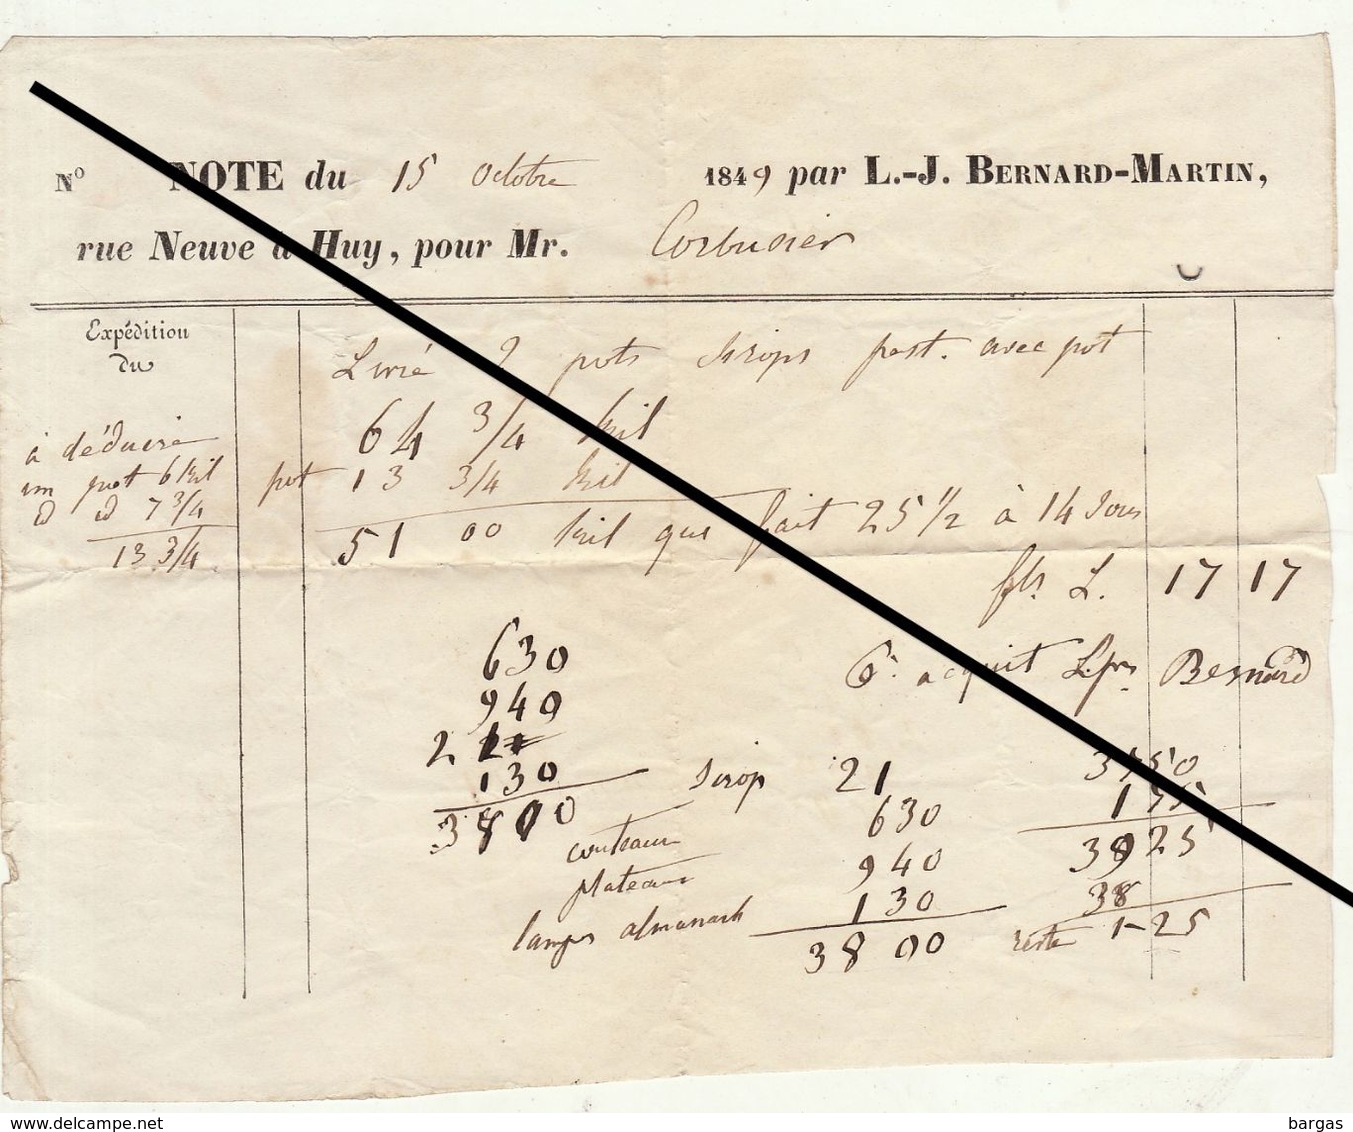 N° NOTE du 15 octobre 1849 par L.-J. BERNARD-MARTIN,
rue Neuve à Huy, pour Mr. Corbusier
Expédition
du
Livré 2 pots sirops avec pot
64 3/4 kil
à déduire
un pot 6 kil
pot 13 3/4 kil
id id 7 3/4
13 3/4
51 00 kil que fait 25 1/2 à 14 sous
fbs L. 17 17
pr acquit Bernard
630
940
2 21
130
3800
sirop 21
couteaux 630
plateaux 940
lampes almanach 130
3800
3750
175
3925
38
reste 1-25
www.delcampe.net
bargas